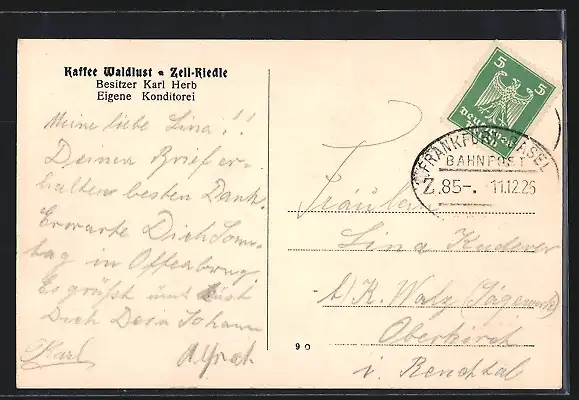 Kaffee Waldlust ▪ Zell-Riedle
Besitzer Karl Herb
Eigene Konditorei
Meine liebe Lina!!
Deinen Brief er-
halten besten Dank.
Erwarte Dich Sonn-
tag in Offenburg
Es grüßt und küsst
Dich Dein Johann
Karl
5 5
FRANKFURT BASEL
BAHNPOST
Z.85-. 11.12.26
Fräulein
Lina
b/ K. Walz (Sägewerk)
Oberkirch
i. Renchtal
9 0